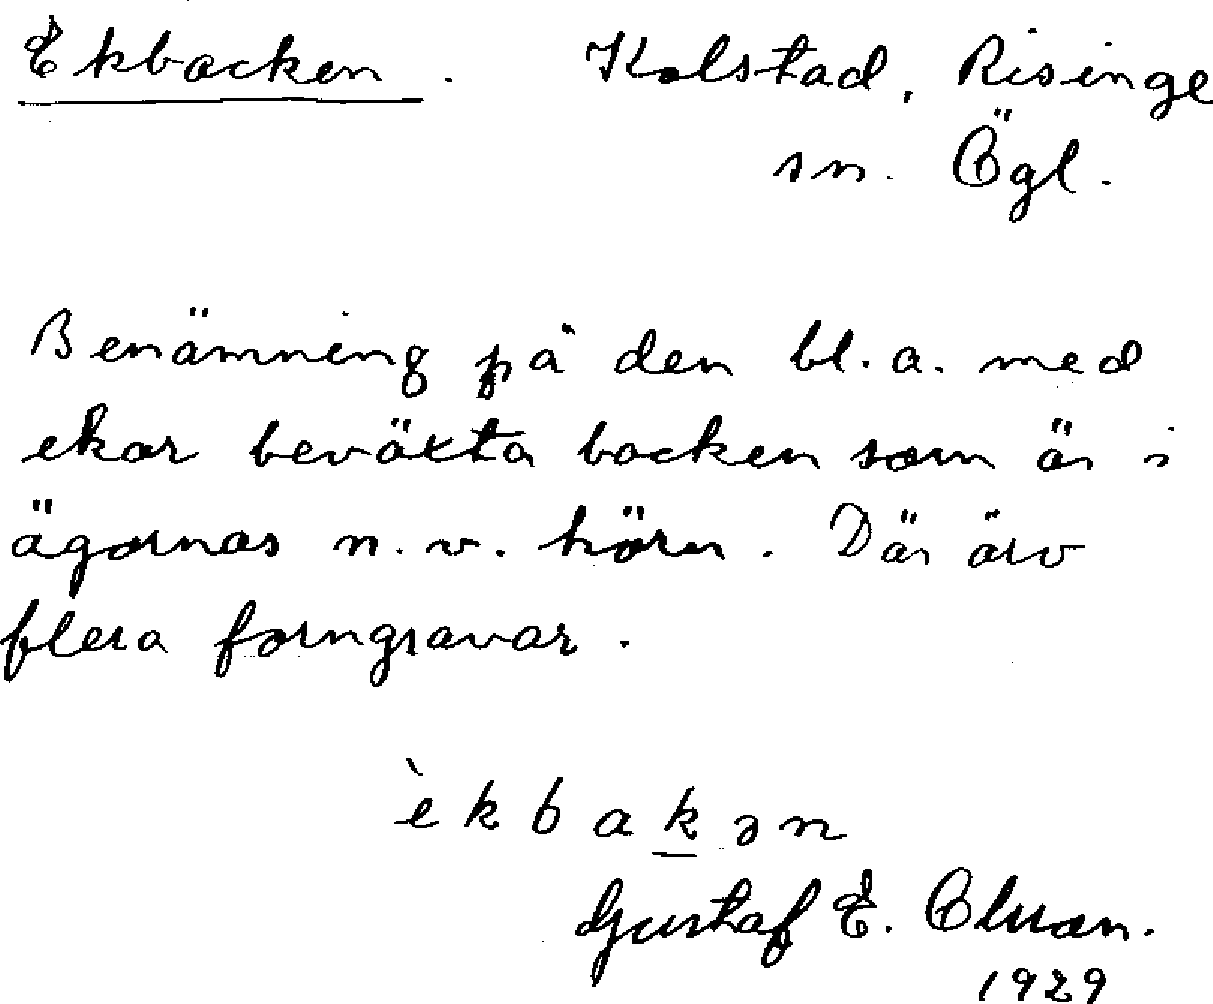 Ekbacken. Kolstad, Risinge
sn. Ögl.
Benämning på den bl. a. med
ekar beväxta backen som är i
ägornas n. v. hörn. Där äro
flera forngravar.
èkbakən
Gustaf E.
1929